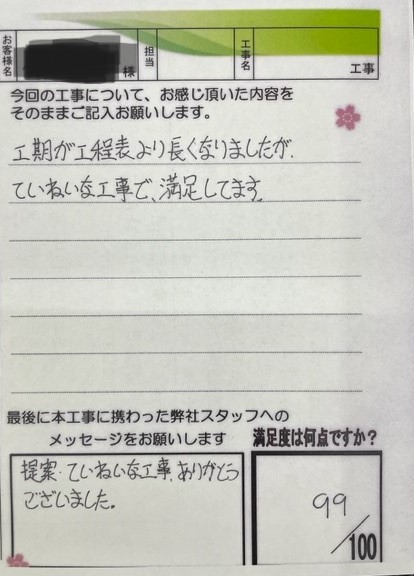 お客様名 様 担当 工事名 工事
今回の工事について、お感じ頂いた内容を
そのままご記入お願いします。
工期が工程表より長くなりましたが、
ていねいな工事で、満足してます。
最後に本工事に携わった弊社スタッフへの
メッセージをお願いします
満足度は何点ですか?
提案・ていねいな工事、ありがとう
ございました。
99
/100